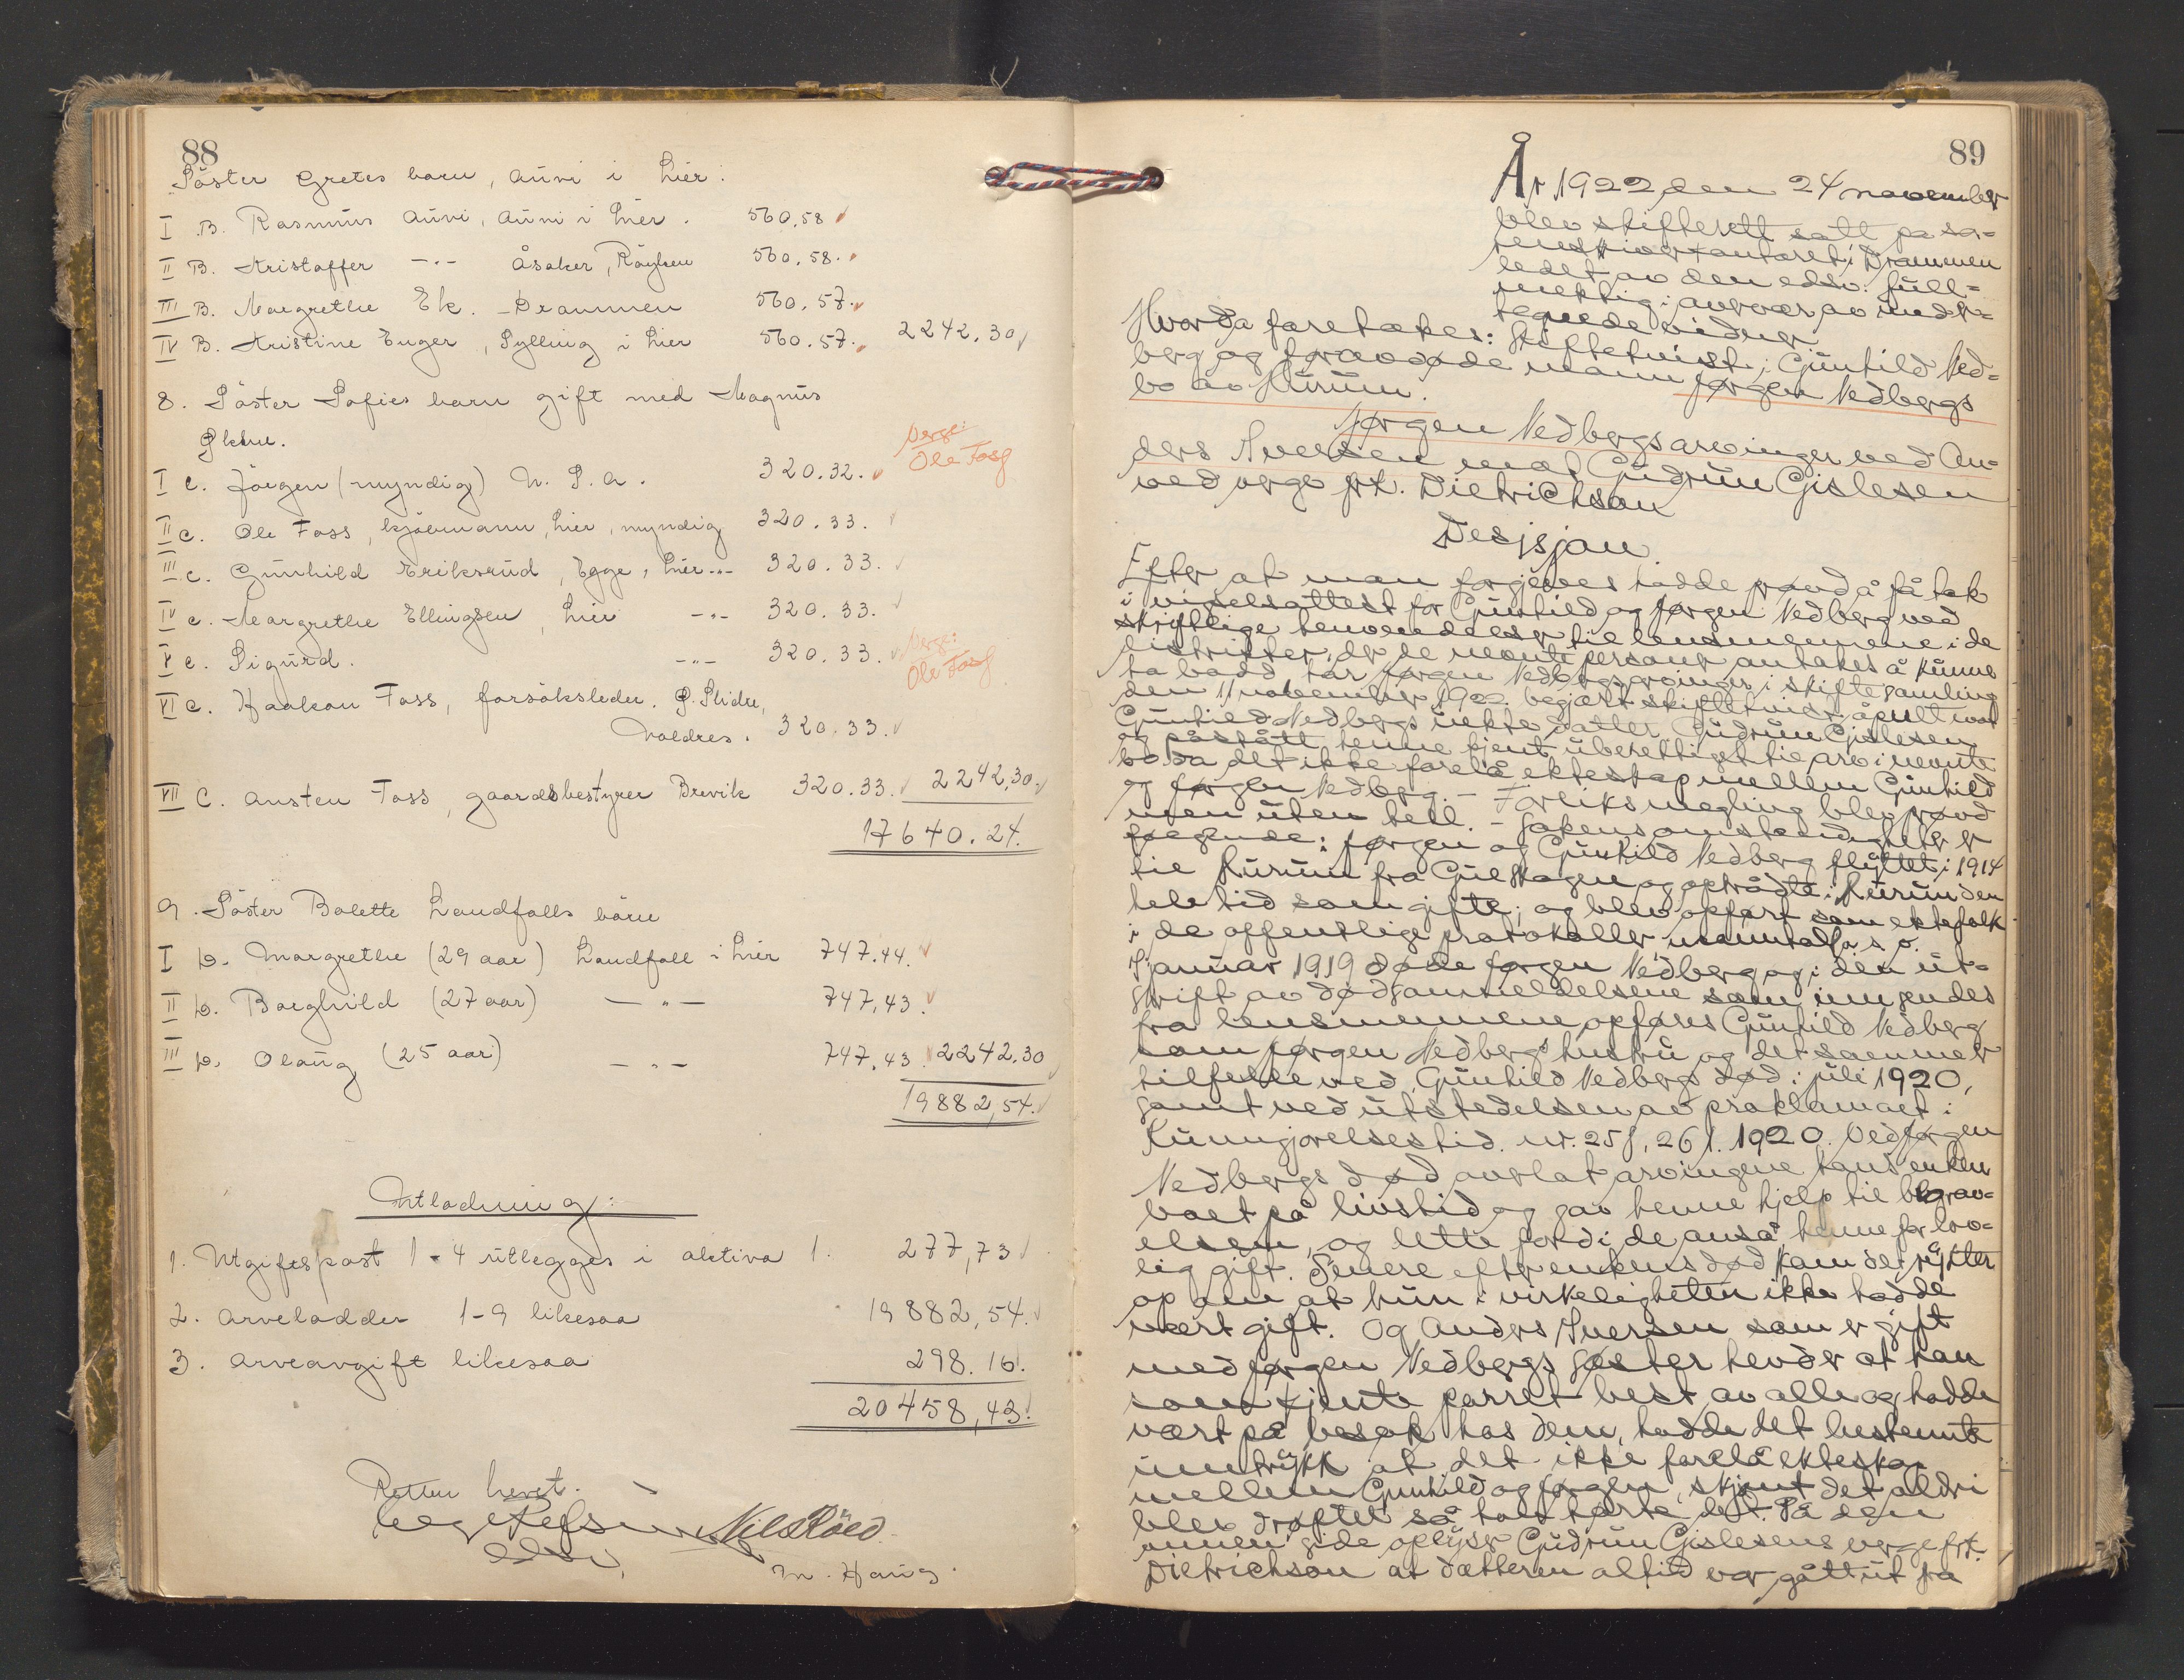 88
Söster Gretes barn, Auvi i Lier:
I B. Rasmus Auvi, Auvi i Lier. 560,58
II B. Kristoffer -"- Åsaker, Röyken 560,58.
III B. Margrethe Ek. - Drammen 560,57.
IV B. Kristine Enger, Sylling i Lier 560,57. 2242,30
8. Söster Sofies barn gift med Magnus
Verge:
Ole Foss
I C. Jörgen (myndig) U. S. A. 320.32.
II C. Ole Foss, kjöbmann, Lier, myndig 320.33.
III C. Gunhild Eriksrud, Egge, Lier -"- 320.33.
IV C. Margrethe Ellingsen, Lier -"- 320.33.
V C. Sigurd. -"- 320.33.
Verge:
Ole Foss
VI C. Haakon Foss, forsöksleder. Ö. Slidre,
Valdres. 320.33.
VII C. Austen Foss, gaardsbestyrer Brevik 320.33. 2242,30.
17640.24.
9. Söster Bolette Landfalls barn
I D. Margrethe (29 aar) Landfall i Lier 747.44.
II D. Borghild (27 aar) -"- 747,43.
III D. Olaug (25 aar) -"- 747,43. 2242,30
19882,54.
Utlodning:
1. Utgiftspost 1-4 utlegges i aktiva 1. 277,73
2. Arvelodder 1-9 likesaa 19882,54.
3. Arveavgift likesaa 298.16.
20458,43.
Retten hevet.
Nils Röed.
M. Haug.
89
År 1922 den 24 november
blev skifterett satt på so-
renskriverkontoret i Drammen
ledet av den edsv. full-
mektig i nærvær av undert-
egnede vidner
Hvorda foretokes: Skiftetvist i Gunhild Ned-
berg og foravdøde mann Jørgen Nedbergs
bo av Hurum.
Jørgen Nedbergs arvinger ved An-
ders Iversen mot Gudrun Gislesen
ved verge frk. Dietrichson
Desisjon.
Efter at man forgjeves hadde prøvd å få tak
i vigselsattest for Gunhild og Jørgen Nedberg ved
skriftlige henvendelser til lensmennene i de
distrikter, der de nevnte personer antakes å kunne
ha bodd har Jørgen Nedbergs arvinger i skiftesamling
den 11 november 1922 begjært skiftetvist åpnet mot
Gunhild Nedbergs uekte datter Gudrun Gislesen
og påstått henne kjent uberettiget til arv i nevnte
bo da det ikke forelå ektestap mellem Gunhild
og Jørgen Nedberg. - Forliksmegling blev prøvd
men uten hell. - Sakens omstendigheter er
følgende: Jørgen og Gunhild Nedberg flyttet i 1914
til Hurum fra Gulskogen og optrådte i Hurum den
hele tid som gifte; og blev opført som ektefolk
i de offentlige protokoller manntall o. s. v.
I januar 1919 døde Jørgen Nedberg og i den ut-
skrift av dødsanmeldelsene som innsendes
fra lensmennene opføres Gunhild Nedberg
som Jørgen Nedbergs hustru og det samme er
tilfelle ved Gunhild Nedbergs død i juli 1920,
samt ved utstedelsen av proklamaet i
Kunngjørelsestid. nr. 258, 261. 1920. Ved Jørgen
Nedbergs død overlot arvingene hans enken
boet på livstid og gav henne hjelp til begrav-
elsen, og dette fordi de anså henne for lov-
lig gift. Senere efter enkens død kom det rykter
op om at hun i virkeligheten ikke hadde
vært gift. Og Anders Iversen som er gift
med Jørgen Nedbergs søster hevder at han
som kjente parret best av alle og hadde
vært på besøk hos dem, hadde det bestemte
inntrykk at det ikke forelå ekteskap
mellem Gunhild og Jørgen, skjønt det aldri
blev drøftet så han hørte det. På den
annen side oplyser Gudrun Gislesens verge frk.
Dietrichson at datteren altid var gått ut fra